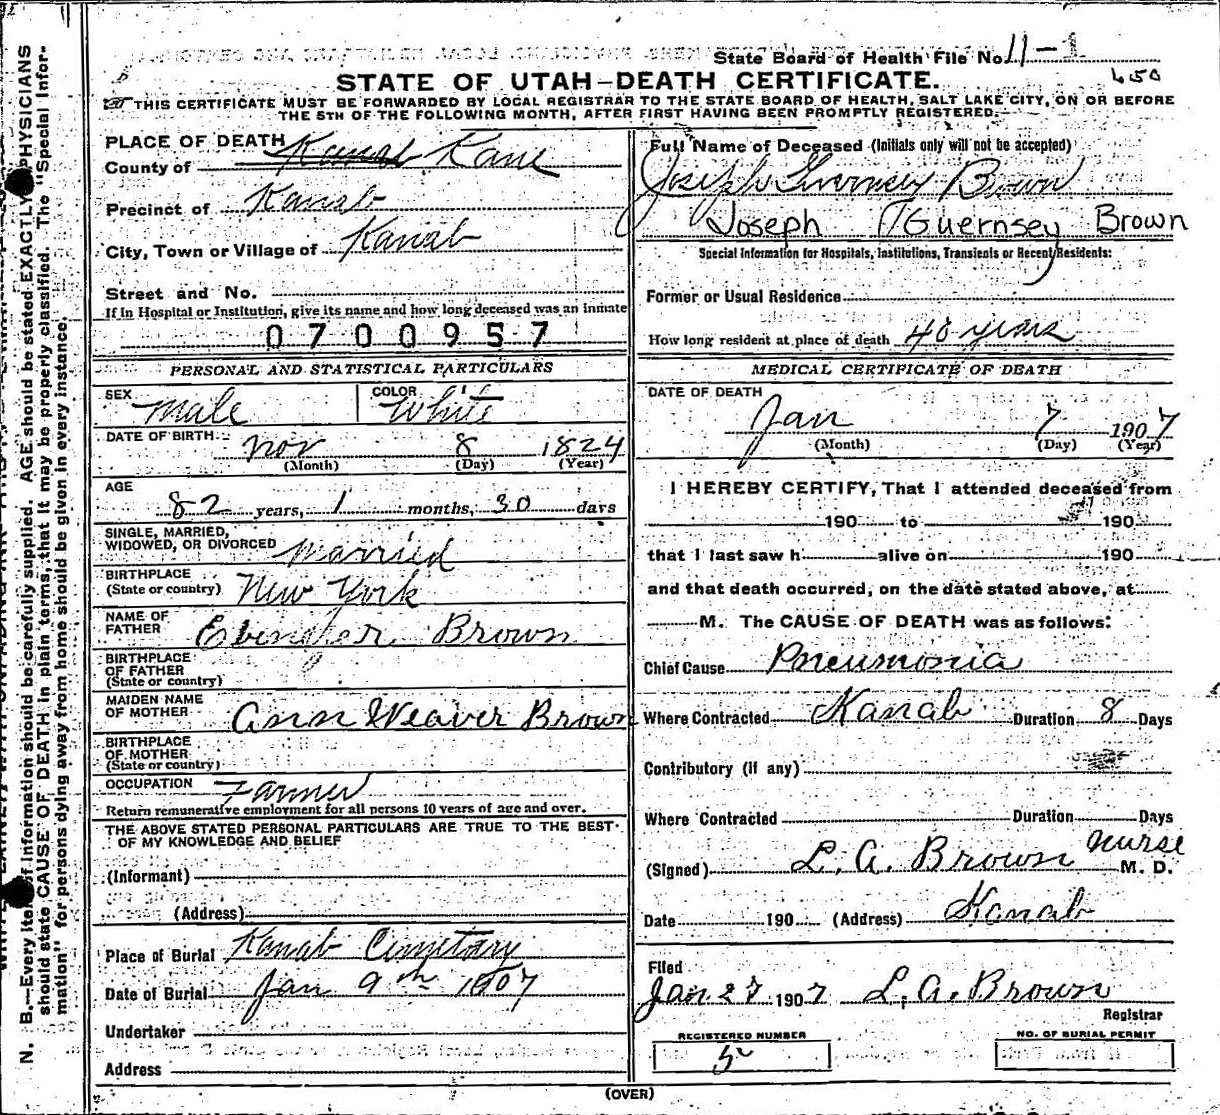 State Board of Health File No. 11-1
450
STATE OF UTAH—DEATH CERTIFICATE.
THIS CERTIFICATE MUST BE FORWARDED BY LOCAL REGISTRAR TO THE STATE BOARD OF HEALTH, SALT LAKE CITY, ON OR BEFORE
THE 5TH OF THE FOLLOWING MONTH, AFTER FIRST HAVING BEEN PROMPTLY REGISTERED.
PLACE OF DEATH
County of Kanab Kane
Precinct of Kanab
City, Town or Village of Kanab
Street and No.
If in Hospital or Institution, give its name and how long deceased was an inmate
0700957
PERSONAL AND STATISTICAL PARTICULARS
SEX Male COLOR White
DATE OF BIRTH Nov 8 1824
(Month) (Day) (Year)
AGE
82 years, 1 months, 30 days
SINGLE, MARRIED,
WIDOWED, OR DIVORCED Married
BIRTHPLACE
(State or country) New York
NAME OF
FATHER Ebenezer Brown
BIRTHPLACE
OF FATHER
(State or country)
MAIDEN NAME
OF MOTHER Ann Weaver Brown
BIRTHPLACE
OF MOTHER
(State or country)
OCCUPATION Farmer
Return remunerative employment for all persons 10 years of age and over.
THE ABOVE STATED PERSONAL PARTICULARS ARE TRUE TO THE BEST
OF MY KNOWLEDGE AND BELIEF
(Informant)
(Address)
Place of Burial Kanab Cemetary
Date of Burial Jan 9th 1907
Undertaker
Address
Full Name of Deceased (Initials only will not be accepted)
Joseph Guernsey Brown
Joseph Guernsey Brown
Special Information for Hospitals, Institutions, Transients or Recent Residents:
Former or Usual Residence
How long resident at place of death 40 years
MEDICAL CERTIFICATE OF DEATH
DATE OF DEATH
Jan 7 1907
(Month) (Day) (Year)
I HEREBY CERTIFY, That I attended deceased from
190 to 190
that I last saw h alive on 190
and that death occurred, on the date stated above, at
M. The CAUSE OF DEATH was as follows:
Chief Cause Pneumonia
Where Contracted Kanab Duration 8 Days
Contributory (if any)
Where Contracted Duration Days
(Signed) L. A. Brown Nurse M. D.
Date 190 (Address) Kanab
Filed
Jan 27 1907 L. A. Brown
Registrar
REGISTERED NUMBER
5
NO. OF BURIAL PERMIT
(OVER)
N. B.—Every item of information should be carefully supplied. AGE should be stated EXACTLY. PHYSICIANS
should state CAUSE OF DEATH in plain terms, that it may be properly classified. The "Special Infor-
mation" for persons dying away from home should be given in every instance.